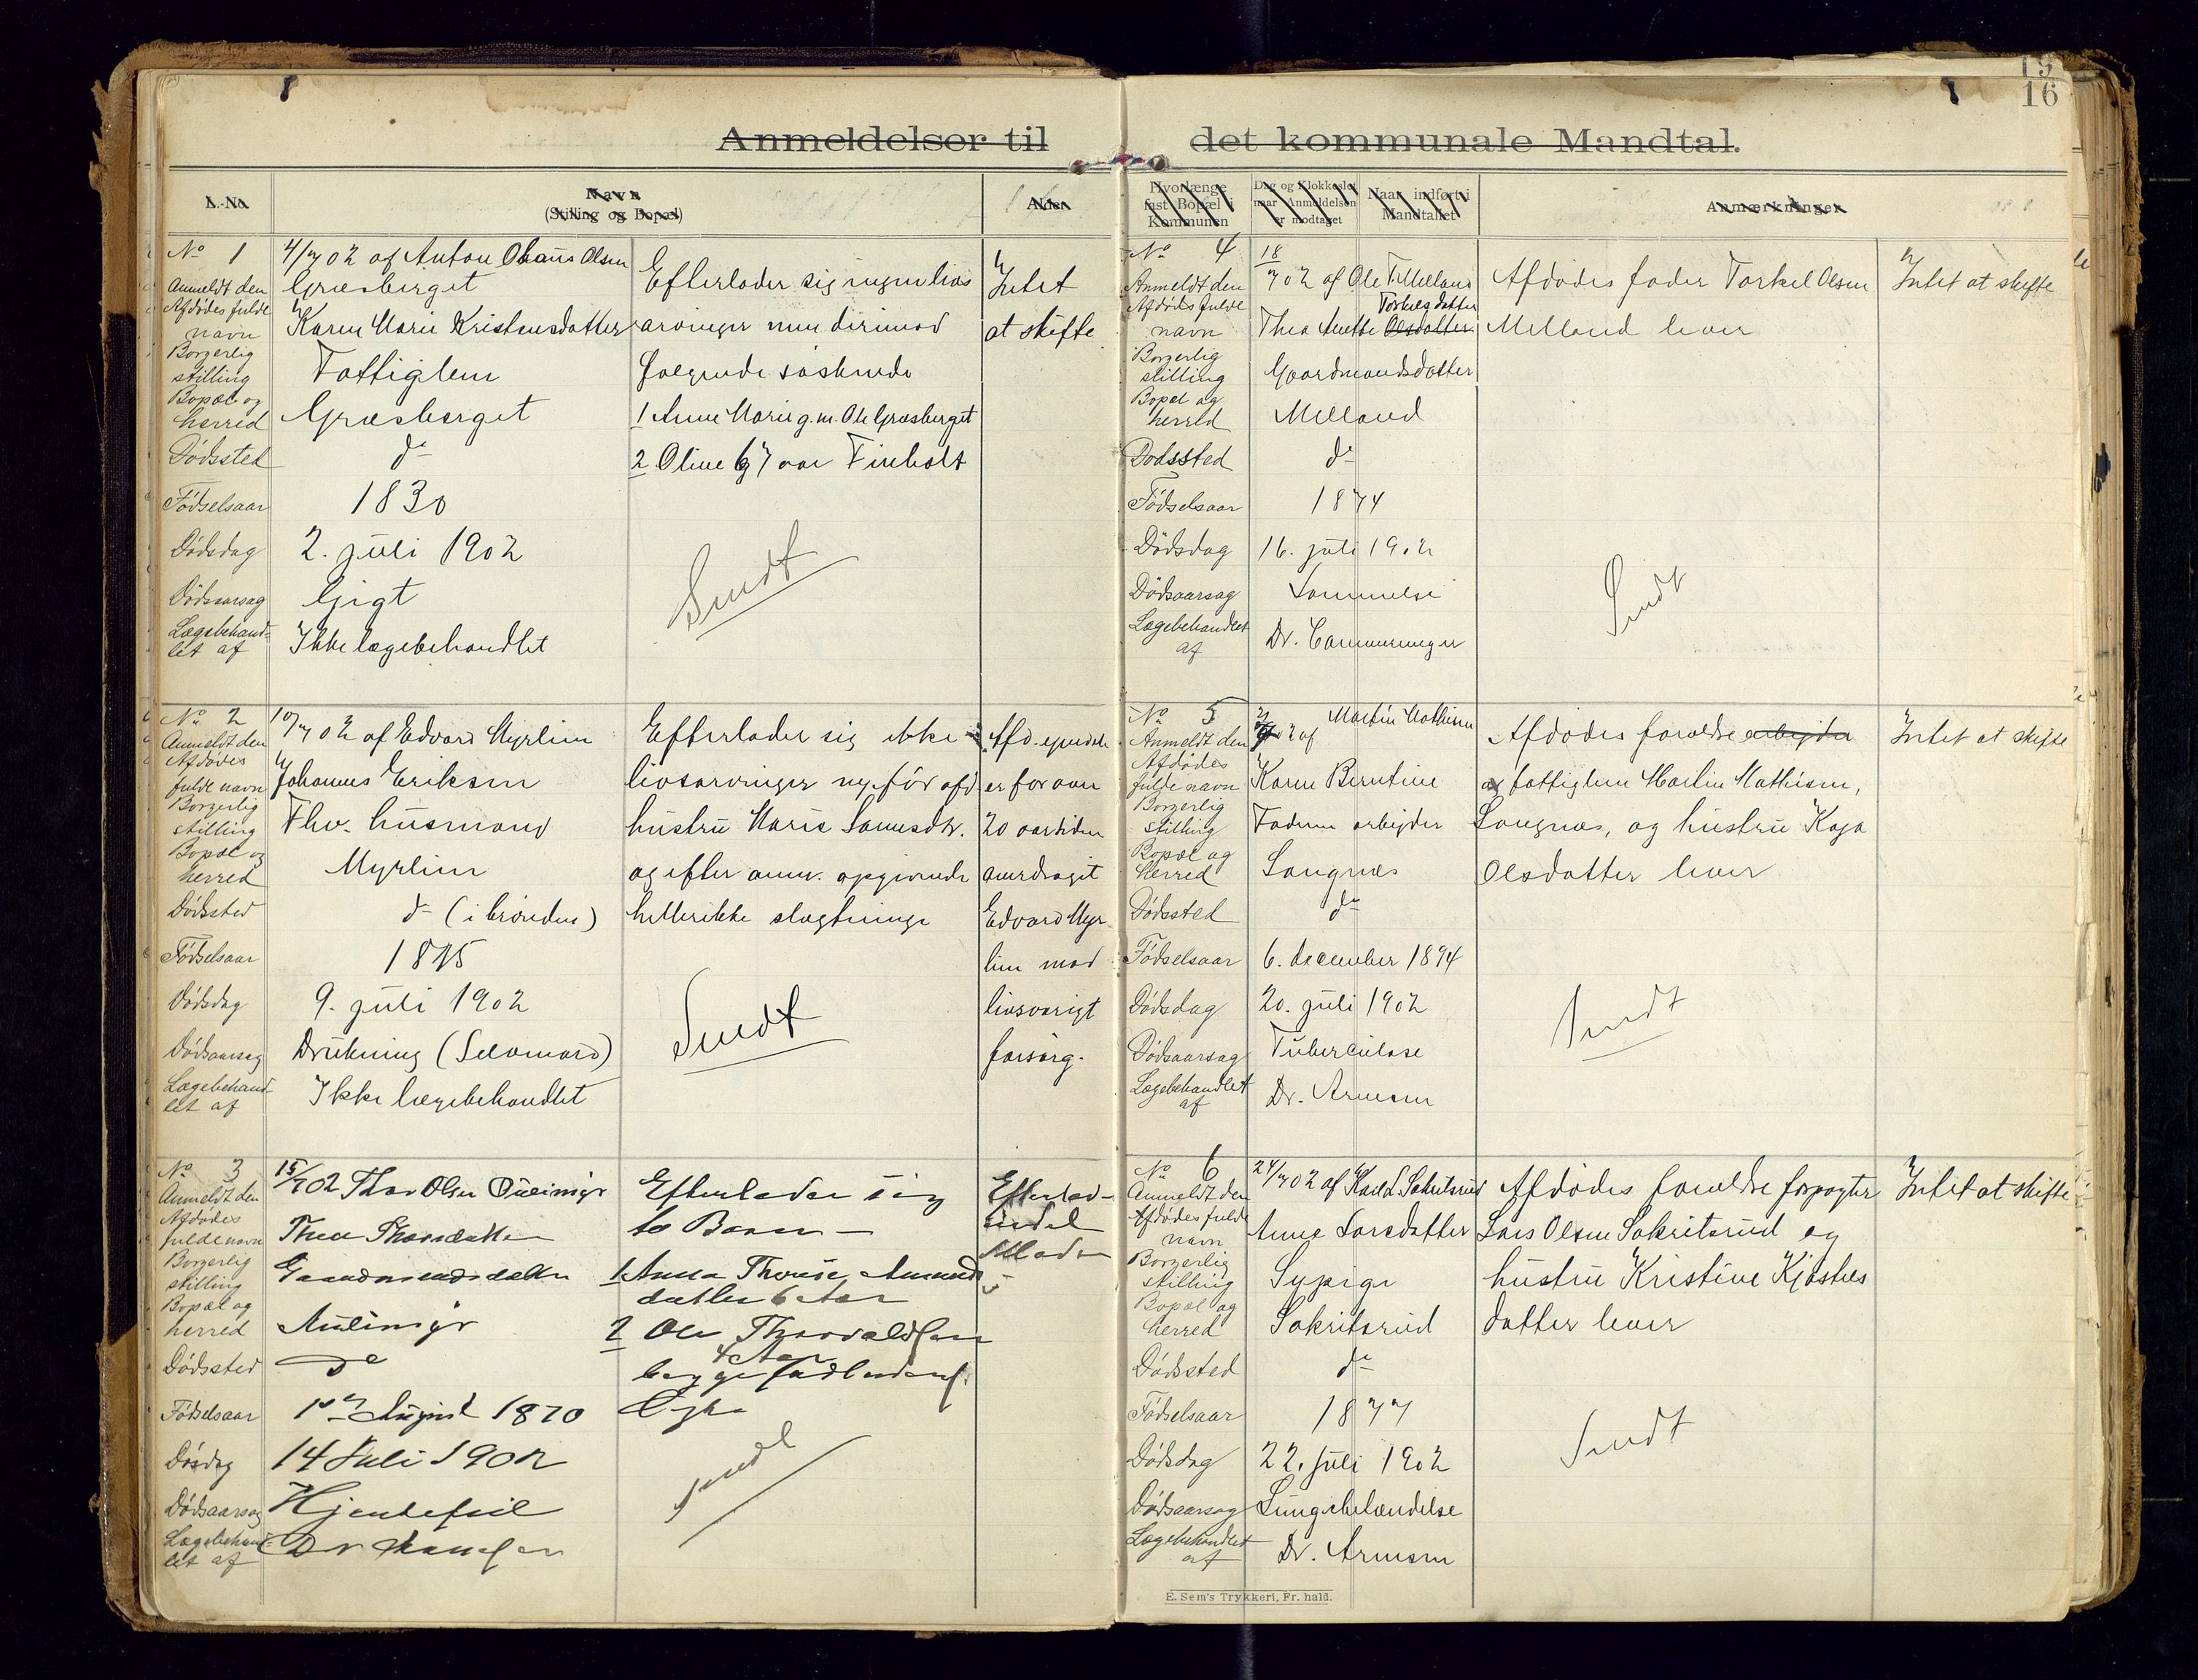 15
16
Anmeldelser til det kommunale Mandtal.
L.-No.
Navn
(Stilling og Bopæl)
Alder
Hvorlænge fast Bopæl i Kommunen
Dag og Klokkeslet naar Anmeldelsen er modtaget
Naar indført i Mandtallet
Anmærkninger
No 1
Anmeldt den 4/7 02 af Anton Olsen
Græsberget
Afdødes fulde navn Karen Marie Kristensdatter
Borgerlig stilling Fattiglem
Bopæl og herred Græsberget
Dødssted do
Fødselsaar 1830
Dødsdag 2. juli 1902
Dødsaarsag Gigt
Lægebehandlet af Ikke lægebehandlet
Efterlader sig ingen livs
arvinger men derimod
følgende søskende
1 Anne Marie g. m. Ole Græsberget
2 Oline 67 aar Finholt
Sendt
Intet
at skifte
No 2
Anmeldt den 10/7 02 af Edvard Myrlien
Afdødes fulde navn Johannes Eriksen
Borgerlig stilling Fhv. husmand
Bopæl og herred Myrlien
Dødssted do (i brønden)
Fødselsaar
Dødsdag 9. juli 1902
Dødsaarsag Drukning (Selvmord)
Lægebehandlet af Ikke lægebehandlet
Efterlader sig ikke
livsarvinger med før afd.
hustru Marie Larsesdtr.
og efter anm. opgivende
heller ikke slægtninge
Sendt
Afd. eiendele
er for over
20 aar siden
overdraget
Edvard Myr
lien mod
livsvarigt
forsørg.
No 3
Anmeldt den 15/7 02 Thor Olsen
Afdødes fulde navn Thea Thorsdatter
Borgerlig stilling Gaardmandsdatter
Bopæl og herred
Dødssted do
Fødselsaar 10de August 1870
Dødsdag 14 Juli 1902
Dødsaarsag Hjertefeil
Lægebehandlet af Dr
Efterlader sig
to Børn
1 Anna Amunds
datter 6 Aar
2 Ole Thorvaldsen
4 Aar
begge
Sendt
Efterlad
Moder
No 4
Anmeldt den 18/7 02 af Ole T. Melland
Afdødes fulde navn Thea Anette Olsdatter Torkelsdatter
Borgerlig stilling Gaardmandsdatter
Bopæl og herred Melland
Dødssted do
Fødselsaar 1874
Dødsdag 16. juli 1902
Dødsaarsag
Lægebehandlet af Dr. Cammermeyer
Afdødes fader Torkel Olsen
Melland lever
Sendt
Intet at skifte
No 5
Anmeldt den 02 af Martin Mathisen
Afdødes fulde navn Karen Berntine
Borgerlig stilling Faderen arbeider
Bopæl og herred Langnes
Dødssted do
Fødselsaar 6. december 1894
Dødsdag 20. juli 1902
Dødsaarsag Tuberculose
Lægebehandlet af Dr. Arnesen
Afdødes forældre arbeider
fattiglem Martin Mathisen,
Langnæs, og hustru Kaja
Olsdatter lever
Sendt
Intet at skifte
No 6
Anmeldt den 24/7 02 af Karl L. Sakritsrud
Afdødes fulde navn Anne Larsdatter
Borgerlig stilling Sypige
Bopæl og herred Sakritsrud
Dødssted do
Fødselsaar 1877
Dødsdag 22. juli 1902
Dødsaarsag Lungebetændelse
Lægebehandlet af Dr. Arnesen
Afdødes forældre forpagter
Lars Olsen Sakritsrud og
hustru Kristine Kjøstels
datter lever
Sendt
Intet at skifte
E. Sem's Trykkeri, Fr.hald.